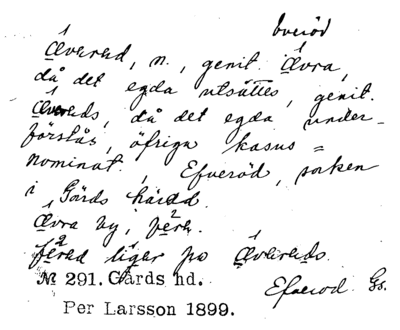 överöd
Æverad, n., genit. Ævra,
då det egda utsättes, genit.
Æverads, då det egda under-
förstås, öfriga kasus =
nominat. Efveröd, socken
i Gärds härad.
Ævra by,
ligər po Æverads.
№ 291. Gärds hd. Efveröd Gs.
Per Larsson 1899.